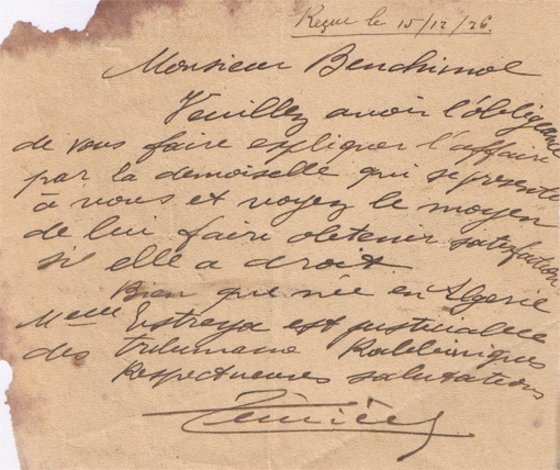 Reçue le 15/12/26.
Monsieur Benchimol
Veuillez avoir l'obligeance
de vous faire expliquer l'affaire
par la demoiselle qui se présente
à vous et voyez le moyen
de lui faire obtenir satisfaction
si elle a droit.
Bien que née en Algérie
Melle Estreya est justiciable
des tribunaux Rabbiniques
Respectueuses salutations